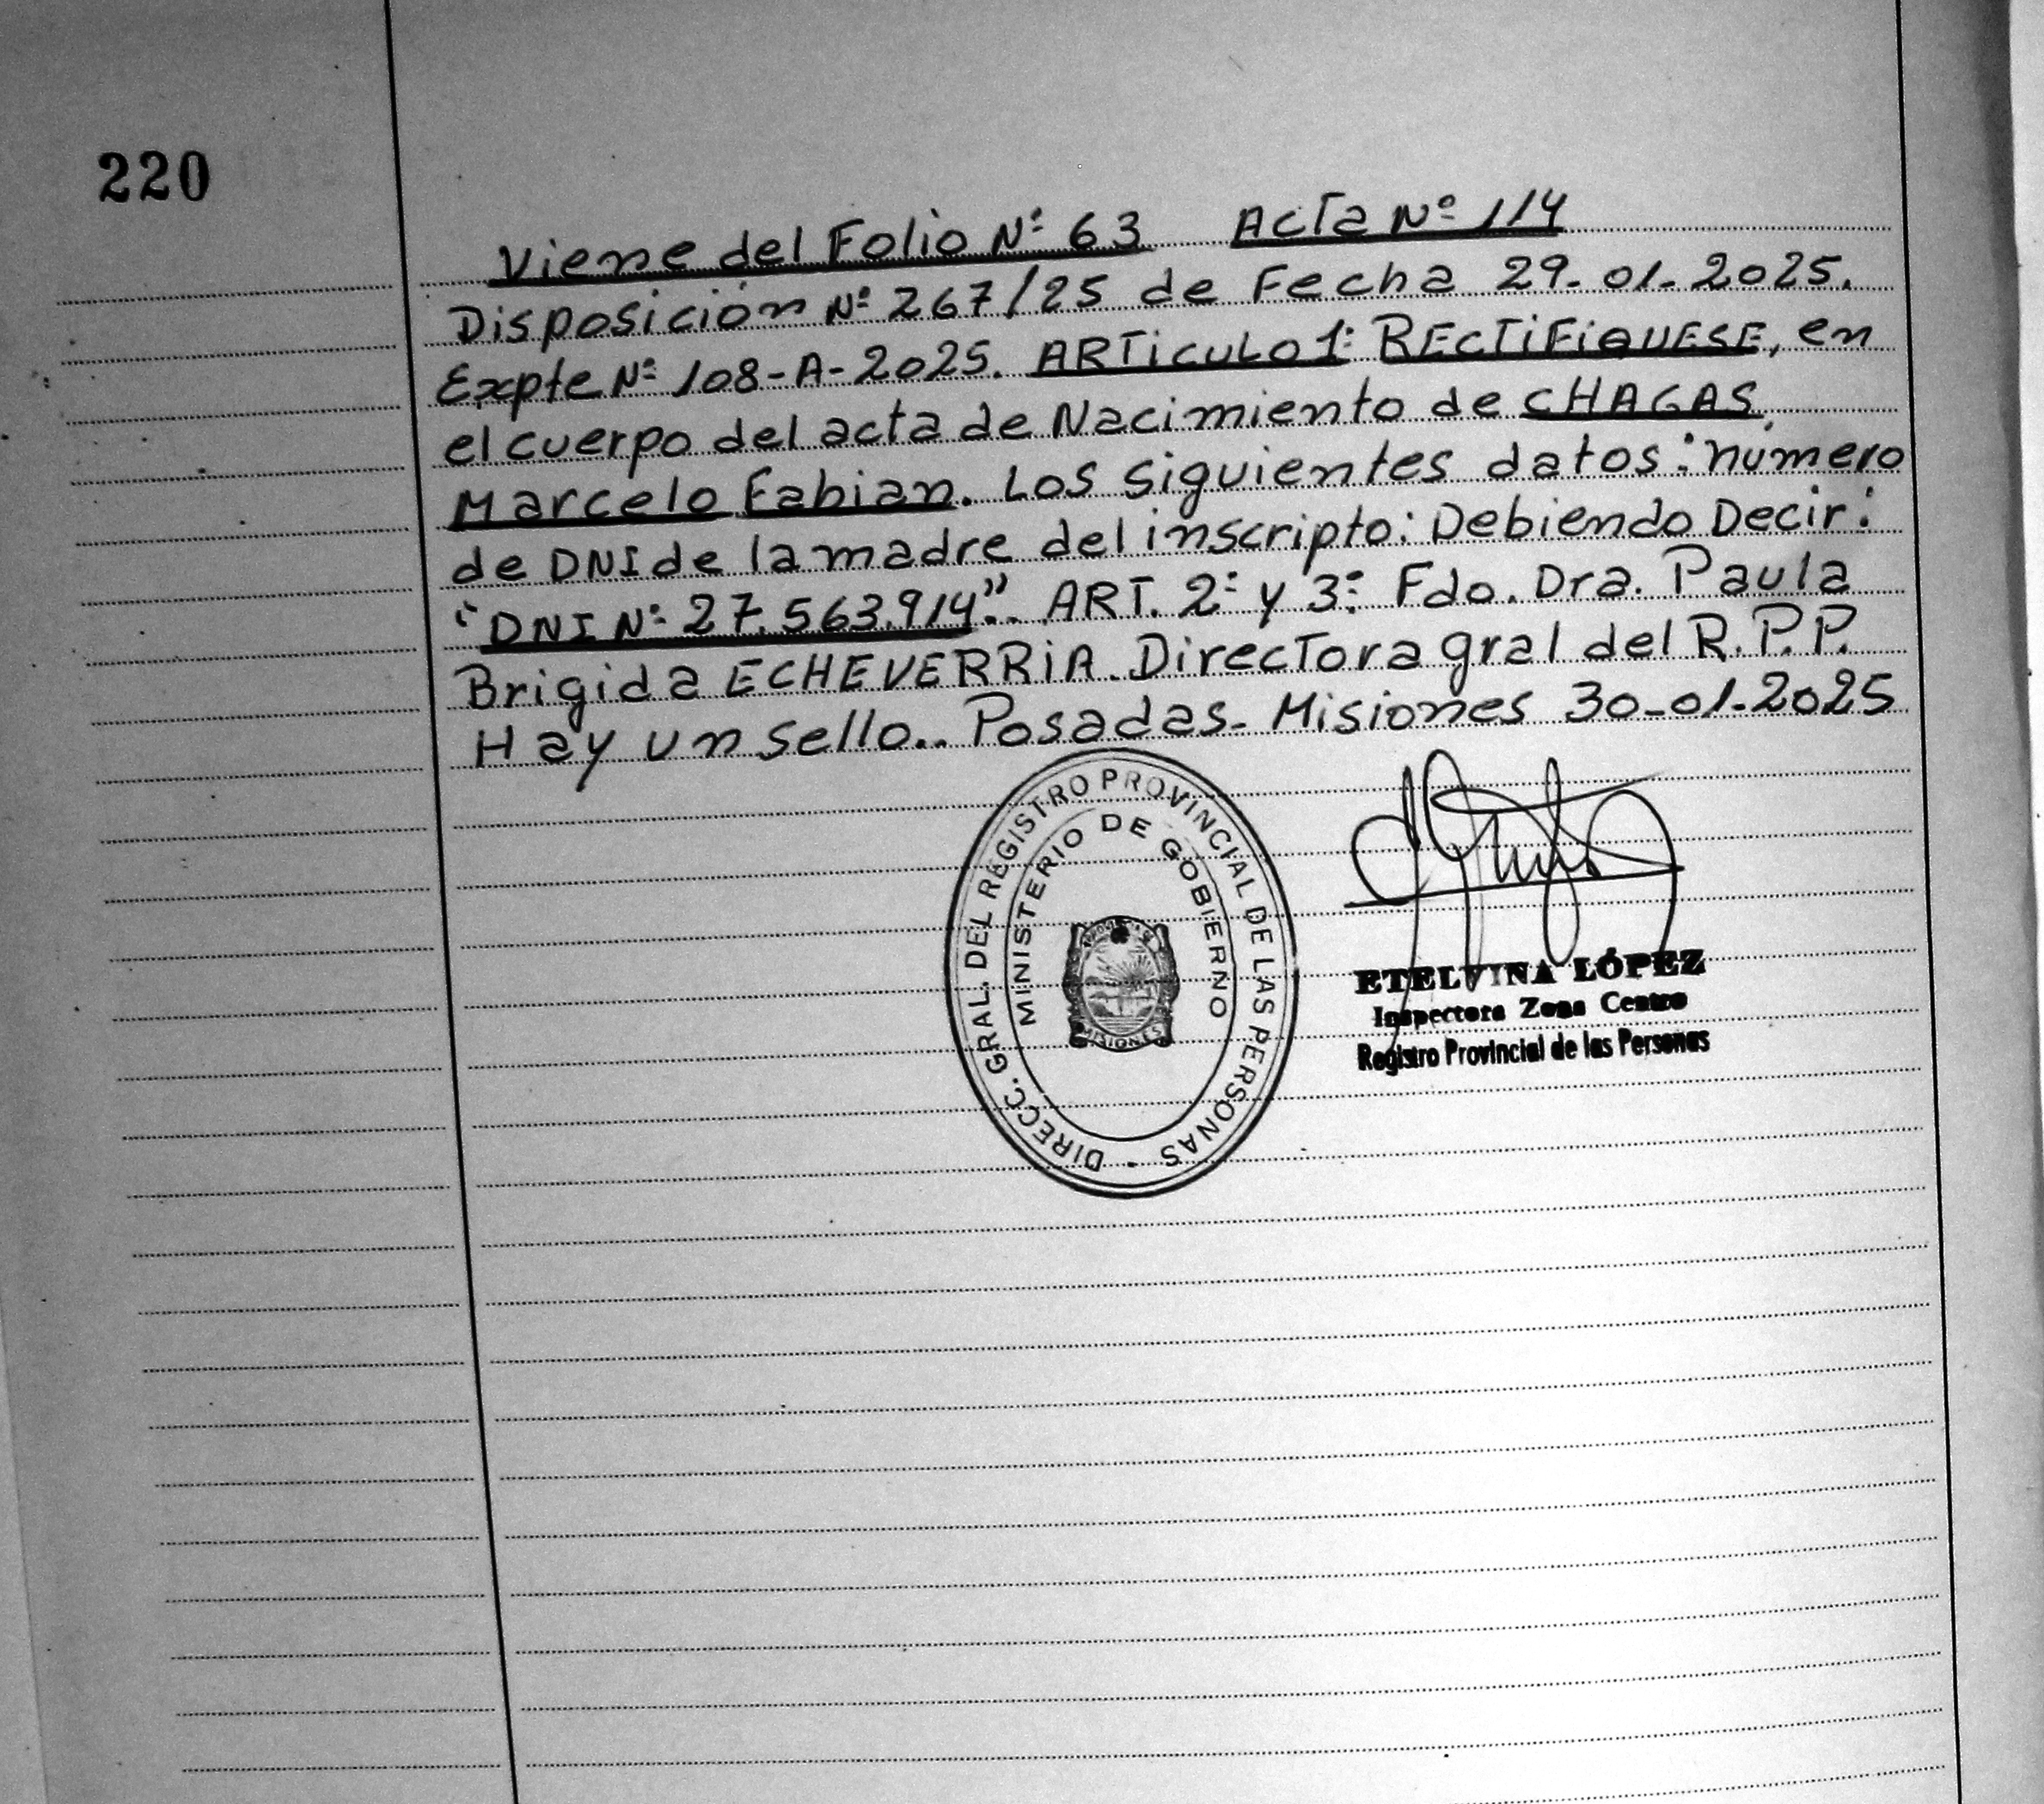 220
Viene del Folio Nº 63 Acta Nº 114
Disposición Nº 267/25 de Fecha 29-01-2025.
Expte Nº 108-A-2025. ARTICULO 1: RECTIFIQUESE, en
el cuerpo del acta de Nacimiento de CHAGAS,
Marcelo Fabian. Los siguientes datos: número
de DNI de la madre del inscripto: Debiendo Decir:
"DNI Nº 27.563.914". ART. 2º y 3º: Fdo. Dra. Paula
Brigida ECHEVERRIA. Directora gral del R.P.P.
Hay un sello.. Posadas- Misiones 30-01-2025
DIRECC. GRAL. DEL REGISTRO PROVINCIAL DE LAS PERSONAS -
MINISTERIO DE GOBIERNO
MISIONES
ETELVINA LÓPEZ
Inspectora Zona Centro
Registro Provincial de las Personas